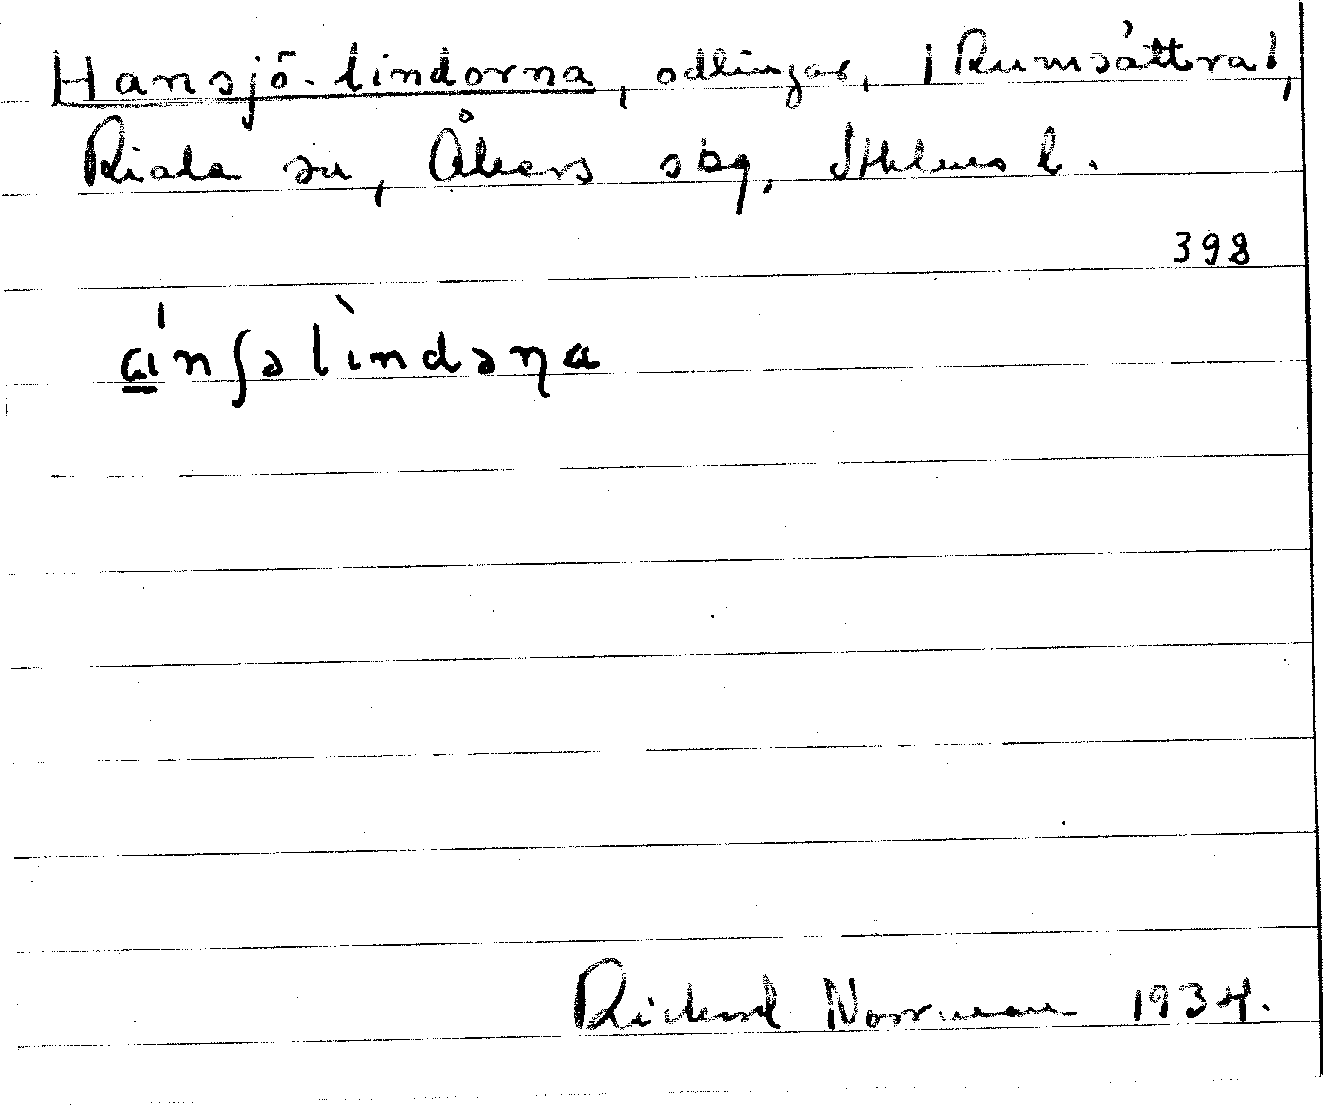 Hansjö-lindorna, odlingar, | Rumsättra |,
Riala sn, Åkers skg, Sthlms l.
398
a'nʃəlìndəɳa
Rickard Norrman 1934.